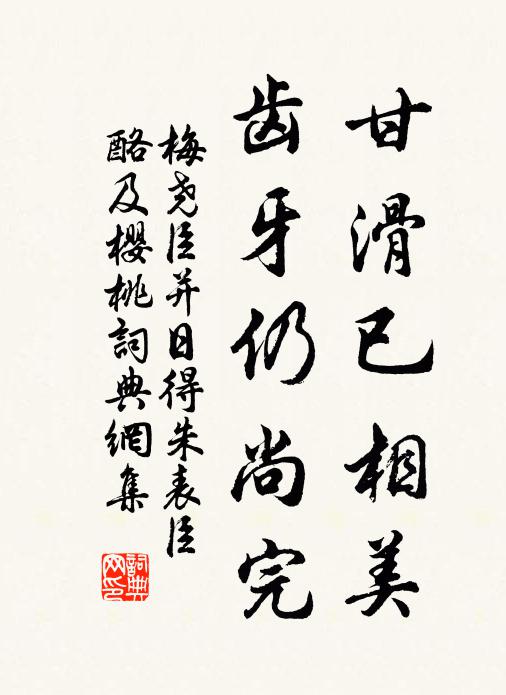 甘滑已相美
齿牙仍尚完
梅尧臣并日得朱表臣
酪及櫻桃詞典網集
詞典
网印